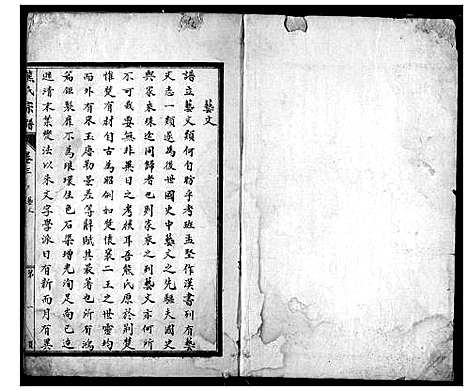 藝文
譜立藝文類何自昉乎考班孟堅作漢書列有藝
文志一類遂為後世國史中藝文之先軽夫國史
與家乘殊途同歸者也則家乘之列藝文亦何所
不可哉要無非異日之考核耳吾熊氏原於荊楚
惟楚有材自古為昭例如楚懷襄二王之世靈均
而外有宋玉唐勒景差等辭賦其最著也所有鴻
篇鉅製靡不為琅環佳色石渠增光洵足尚已迨
遜清末葉變法以來文字學派日有新而月有異
熊氏宗譜
卷三
藝文